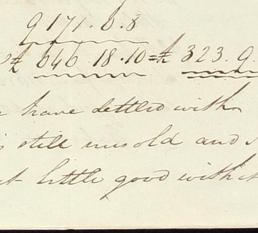 9171.6.8
646.18.10 = £ 323.9.
have settled with
still unsold and
little good with